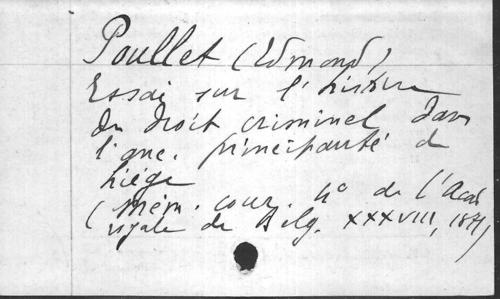 Poullet (Edmond)
Essai sur l'histoire
du droit criminel dans
l'anc. principauté de
Liége
(Mém. cour. 4° de l'Acad.
royale de Belg. XXXVIII, 1874)